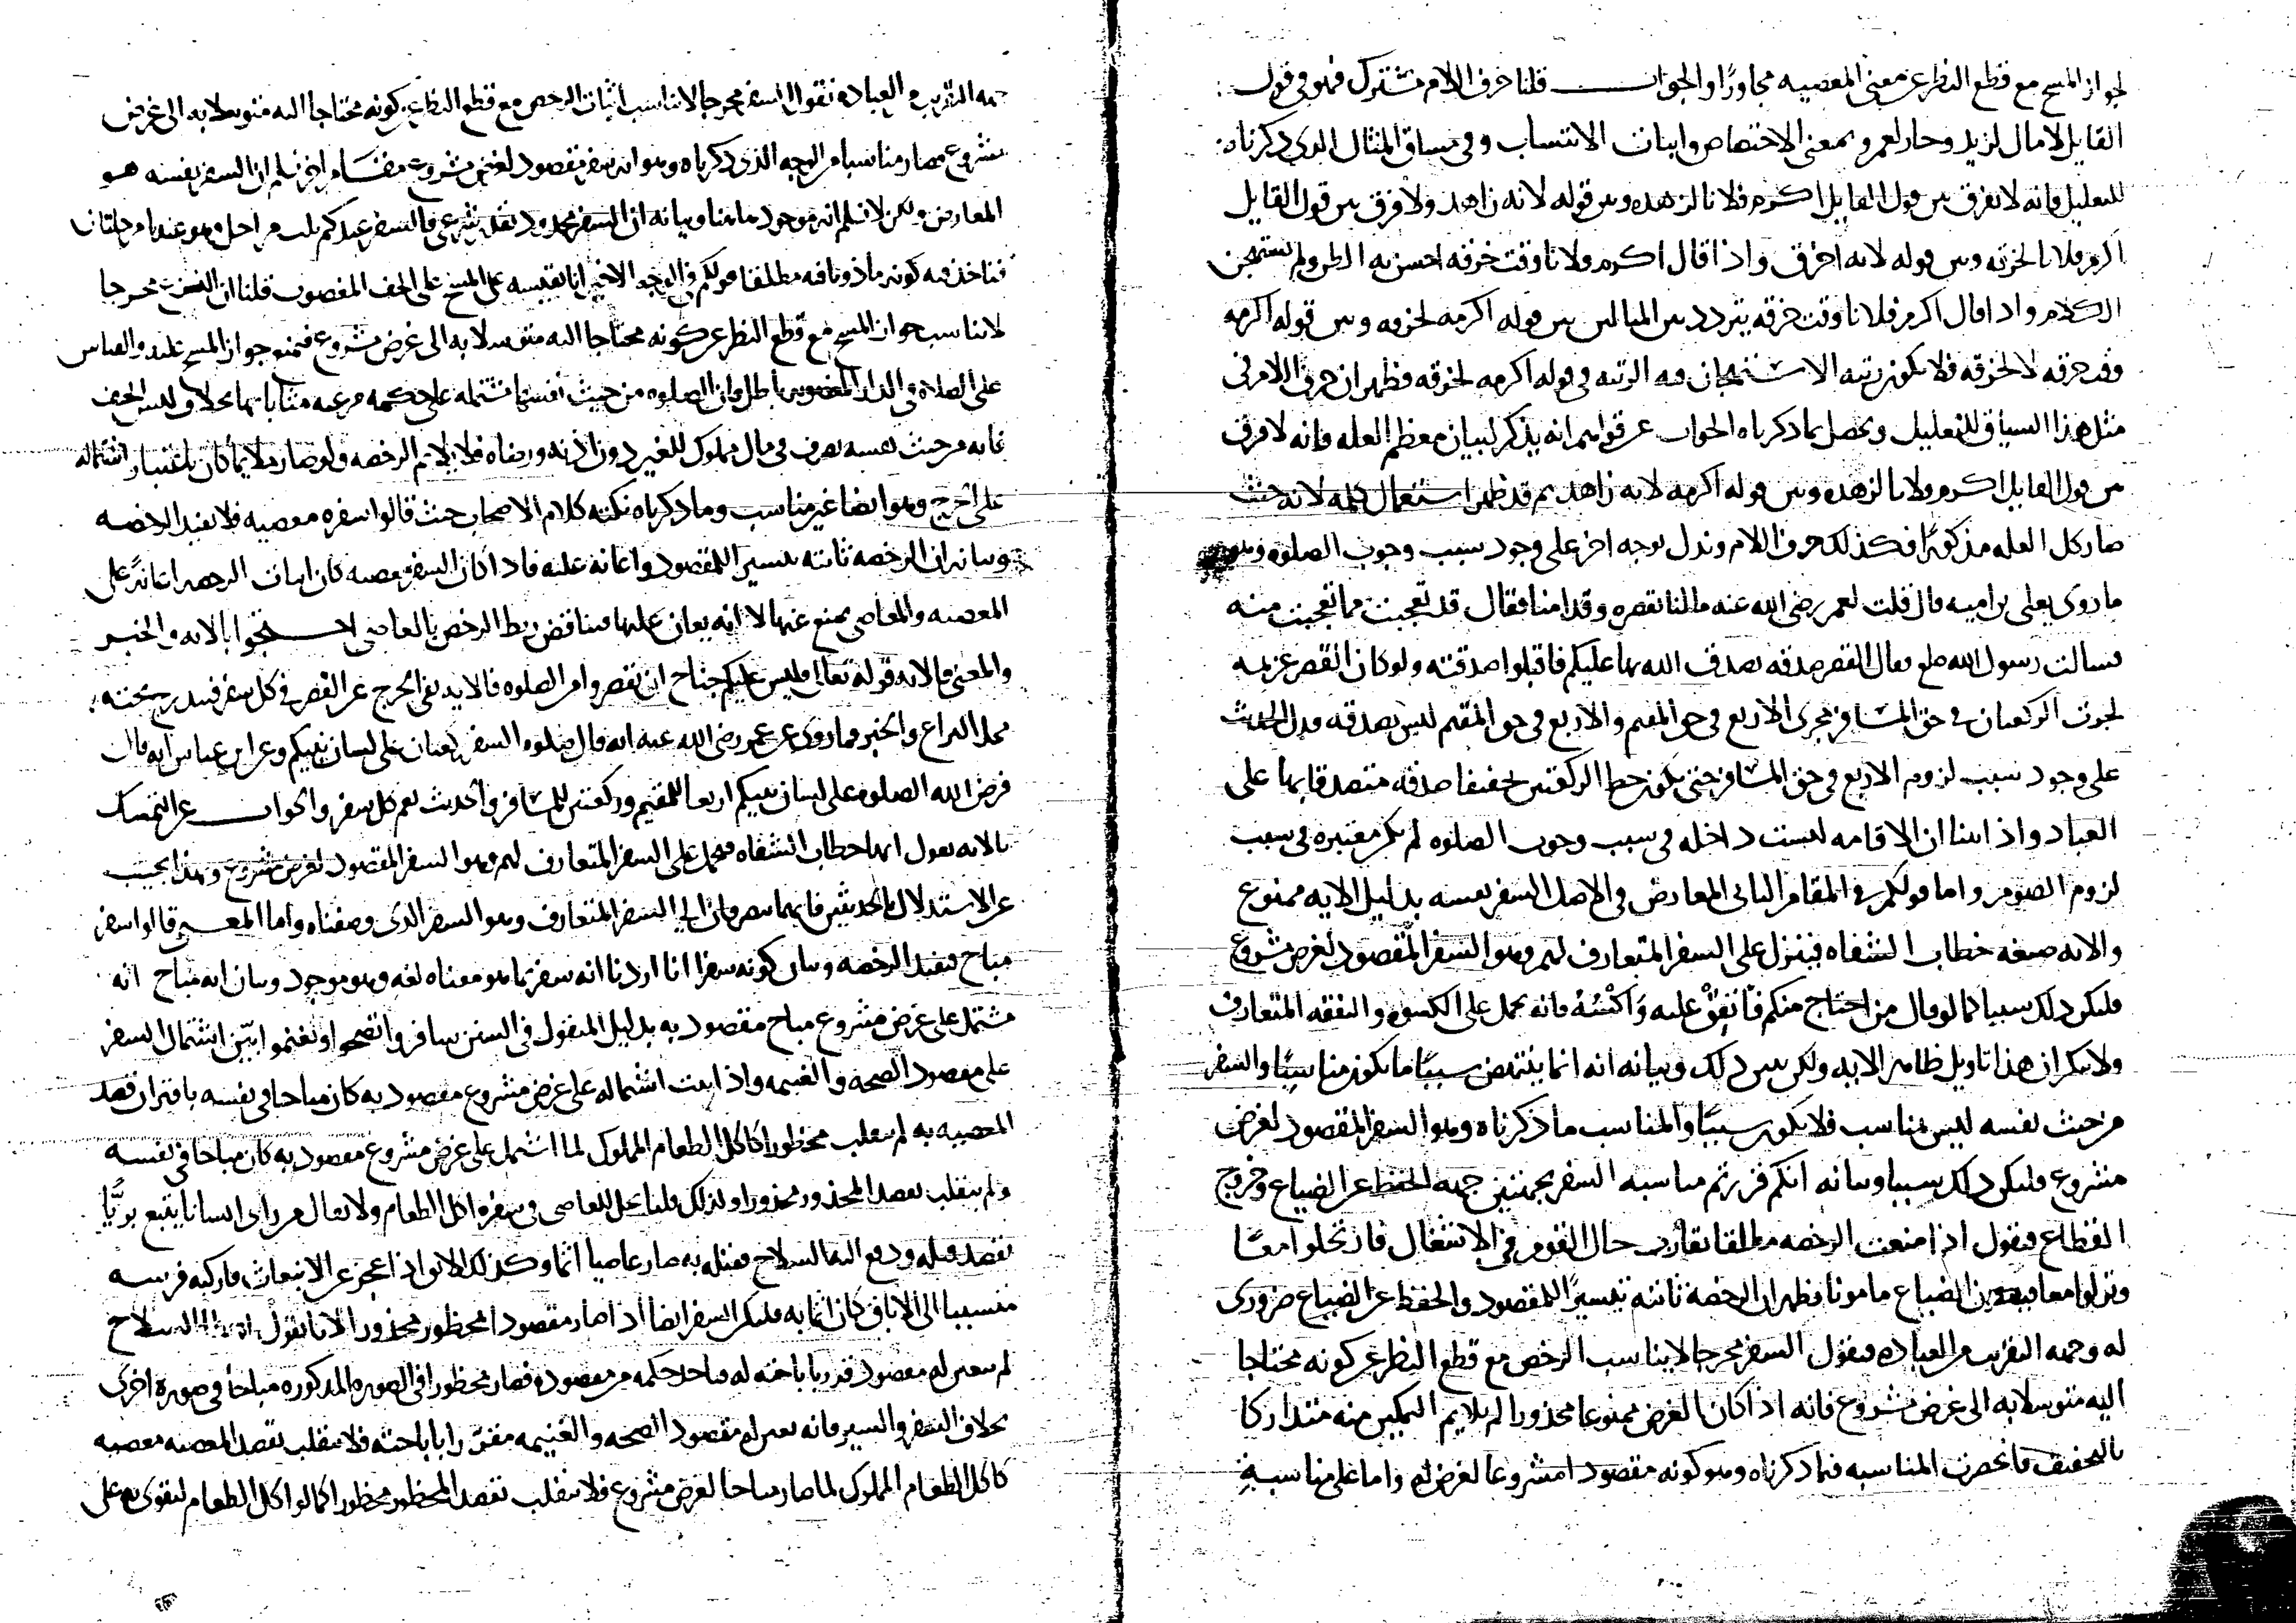 لجواز المسح مع قطع النظر عن معنى المعصيه مجاورًا والجواب قلنا حرف اللام مشترك فهو في قول
القايل لا مال لزيد وحار لعمرو بمعنى الاختصاص واثبات الانتساب وفي مساق المثال الذي ذكرناه
للتعليل فانه لا نفرق بين قول القايل اكرم فلانا لزهده وبين قوله لانه زاهد ولا فرق بين قول القايل
اكرم فلانا لخرقه وبين قوله لانه اخرق واذا قال اكرم فلانا وقت خرقه احسن به الظن ولم يستهجن
الكلام واذا قال اكرم فلانا وقت خرقه يتردد بين المثالين بين قوله اكرمه لخرقه وبين قوله اكرمه
وقت خرقه لا لخرقه فلا يكون رتبه الاستهجان فيه الرتبه في قوله اكرمه لخرقه فظهر ان حرف اللام في
مثل هذا السياق للتعليل ويحصل بما ذكرناه الجواب عن قولهم انه يذكر لبيان معظم العله فانه لا فرق
بين قول القايل اكرم فلانا لزهده وبين قوله اكرمه لانه زاهد ثم قد ظهر استعمال كلمه لانه حيث
صار كل العله مذكورًا فكذلك حرف اللام وندل بوجه اخر على وجود سبب وجوب الصلوه وهو
ما روى يعلى بن اميه قال قلت لعمر رضي الله عنه ما لنا نقصر وقد امنا فقال قد تعجبت مما تعجبت منه
فسالت رسول الله صلع فقال القصر صدقه تصدق الله بها عليكم فاقبلوا صدقته ولو كان القصر عزيمه
لجرت الركعتان في حق المسافر مجرى الاربع في حق المقيم والاربع في حق المقيم ليس بصدقه فدل الحديث
على وجود سبب لزوم الاربع في حق المسافر حتى يكون حط الركعتين تخفيفا صدقه متصدقا بها على
العباد واذا اثبتنا ان الاقامه ليست داخله في سبب وجوب الصلوه لم يكن معتبره في سبب
لزوم الصوم واما قولكم في المقام الثاني المعارض في الاصل السفر نفسه بدليل الايه ممنوع
والايه صيغه خطاب الشفاه فينزل على السفر المتعارف لهم وهو السفر المقصود لغرض مشروع
فليكن ذلك سببا كما لو قال من احتاج منكم فأنفق عليه وأكسه فانه يحمل على الكسوه والنفقه المتعارف
ولا ينكر ان هذا تاويل ظاهر الايه ولكن بين ذلك وبيانه انه انما ينتهض سببًا ما يكون مناسبًا والسفر
من حيث نفسه ليس مناسب فلا يكون سببًا والمناسب ما ذكرناه وهو السفر المقصود لغرض
مشروع فليكن ذلك سببا وبيانه انكم قررتم مناسبه السفر بجهتين جهه الحفظ عن الضياع وخروج
القطاع فنقول اذا امتنعت الرخصه مطلقا تقارب حال القوم في الاشتغال فارتحلوا معًا
ونزلوا معا الضياع مامونا فظهر ان الرخصه ثابته تيسيرًا للمقصود والحفظ عن الضياع ضروري
له وجهه التقريب من العباده فنقول السفر محرجا لا يناسب الرخص مع قطع النظر عن كونه محتاجا
اليه متوسلا به الى غرض مشروع فانه اذا كان الغرض ممنوعا محذورا لم يلايم التمكين منه متداركا
بالتخفيف فانحصرت المناسبه فيما ذكرناه وهو كونه مقصودا مشروعا لغرض له واما على مناسبةِ
جهه التقريب من العباده نقول السفر محرجا لا يناسب اثبات الرخص مع قطع النظر عن كونه محتاجا اليه متوسلا به الى غرض
مشروع فصار مناسبا من الوجه الذي ذكرناه وهو انه سفر مقصود لغرض مشروع مقام اخر نسلم ان السفر بنفسه هو
المعارض ولكن لا نسلم انه موجود هاهنا وبيانه ان السفر محدود بقدر شرعي فالسفر عندكم ثلث مراحل وهو عندنا مرحلتان
فناخذ فيه كونه ماذونا فيه مطلقا قولكم في الوجه الاخير انا نقيسه على المسح على الخف المغصوب قلنا ان النزع محرجا
لا يناسب جواز المسح مع قطع النظر عن كونه محتاجا اليه متوسلا به الى غرض مشروع فيمنع جواز المسح عليه والقياس
على الصلاه في الدار المغصوبه باطل فان الصلوه من حيث نفسها مشتمله على حكمه مرعيه مثابا بها بخلاف لبس الخف
فانه من حيث نفسه تصرف في مال مملوك للغير دون اذنه ورضاه فلا يلايم الرخصه ولو صار ملايما كان باعتبار اشتماله
على الحرج وهو ايضا غير مناسب وما ذكرناه نكته كلام الاصحاب حيث قالوا سفره معصيه فلا يفيد الرخصه
وبيانه ان الرخصه ثابته تيسيرا للمقصود واعانه عليه فاذا كان السفر معصيه كان اثبات الرخصه اعانةً على
المعصيه والمعاصي يمنع عنها لا انه يعان عليها فيناقض ربط الرخص بالمعاصي احتجوا بالايه والخبر
والمعنى فالايه قوله تعالى فليس عليكم جناح ان تقصروا من الصلوه فالايه نفي الحرج عن القصر في كل سفر فيندرج تحته
محل النزاع والخبر فما روي عن عمر رضي الله عنه انه قال صلوه السفر ركعتان على لسان نبيكم وعن ابن عباس انه قال
فرض الله الصلوه على لسان نبيكم اربعا للمقيم وركعتين للمسافر والحديث يعم كل سفر والجواب عن التمسك
بالايه نقول انها خطاب الشفاه فيحمل على السفر المتعارف لهم وهو السفر المقصود لغرض مشروع وبهذا نجيب
عن الاستدلال بالحديثين فانهما ينصرفان الى السفر المتعارف وهو السفر الذي وصفناه واما المعنى قالوا سفر
مباح فيفيد الرخصه وبيان كونه سفرا انا اردنا انه سفر بما هو معناه لغه وهو موجود وبيان انه مباح انه
مشتمل على غرض مشروع مباح مقصود به بدليل المنقول في السنن سافروا تصحوا وتغنموا بيّن اشتمال السفر
على مقصود الصحه والغنيمه واذا ثبت اشتماله على غرض مشروع مقصود به كان مباحا في نفسه باقتران قصد
المعصيه به لم ينقلب محظورا كاكل الطعام المملوك لما اشتمل على غرض مشروع مقصود به كان مباحا في نفسه
ولم ينقلب بقصد المحذور محذورا ولذلك قلنا يحل للعاصي في سفره اكل الطعام ولا يقال من راى انسانا يتبع بريًّا
يقصد قتله ودفع اليه السلاح فقتله به صار عاصيا اثما وكذلك الابق اذا عجز عن الانبعاث فاركبه فرسه
متسببا الى الاباق كان اثما به فليكن السفر ايضا اذا صار مقصودا محظور محذورا لانا نقول السلاح
لم يتعين له مقصود قدر باباحته له فياخذ حكمه من مقصوده فصار محظورا في الصوره المذكوره مباحا في صوره اخرى
بخلاف السفر والسير فانه تعين له مقصود الصحه والغنيمه مقررا باباحته فلا ينقلب بقصد المعصيه معصيه
كاكل الطعام المملوك لما صار مباحا لغرض مشروع فلا ينقلب بقصد المحظور محظورا كما لو اكل الطعام ليتقوى به على